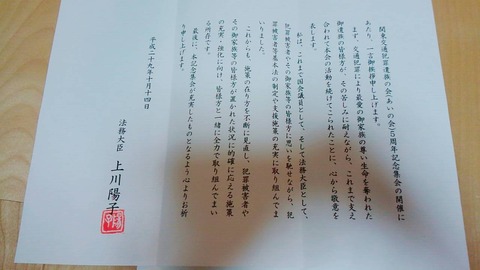 関東交通犯罪遺族の会(あいの会)5周年記念集会の開催に
あたり、一言御挨拶申し上げます。
まず、交通犯罪により最愛の御家族の尊い生命を奪われた
御遺族の皆様方が、その苦しみに耐えながら、これまで支え
合われて本会の活動を続けてこられたことに、心から敬意を
表します。
私は、これまで国会議員として、そして法務大臣として、
犯罪被害者やその御家族等の皆様方に思いを馳せながら、犯
罪被害者等基本法の制定や支援施策の充実に取り組んでま
いりました。
これからも、施策の在り方を不断に見直し、犯罪被害者や
その御家族等の皆様方が置かれた状況に的確に応える施策
の充実・強化に向け、皆様方と一緒に全力で取り組んでまい
る所存です。
最後に、本記念集会が充実したものとなるよう心よりお祈
り申し上げます。
平成二十九年十月十四日
法務大臣 上川陽子